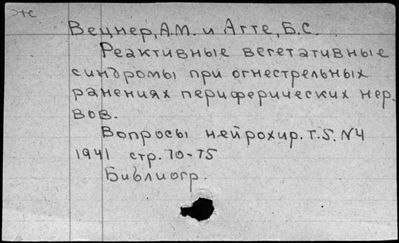 Ж
Вецнер, А.М. и Агте, Б.С.
Реактивные вегетативные
синдромы при огнестрельных
ранениях периферических нер-
вов.
Вопросы нейрохир. т.5. №4
1941 стр. 70-75
Библиогр.